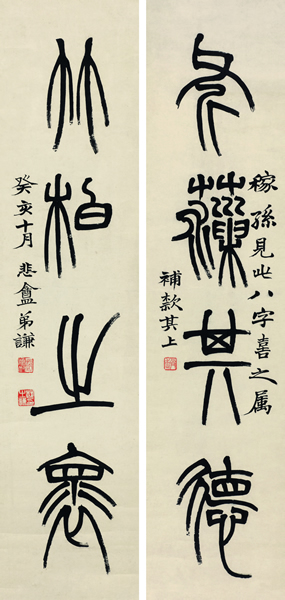 其德
稼孫見此八字喜之属
補款其上
竹柏之褱
癸亥十月悲盦弟謙